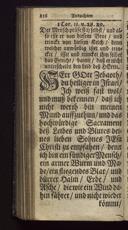 216 Andachten
1 Cor. 11. v. 28. 29.
Der Mensch prüfe sich selbst / und al-
so esse er von diesem Brot / und
trincke von diesem Kelch / denn
welcher unwürdig isset und trin-
cket / der isset und trincket ihm
das Gericht / damit / daß er nicht
unterscheidet den Leib des HErrn.
HErr GOtt Zebaoth /
du heiliger in Israel /
Ich weiß fast wol /
und muß bekennen / daß ich
nicht werth bin meinen
Mund auffzuthun / und das
hochwürdige Sacrament
des Leibes und Blutes dei-
nes lieben Sohnes JEsu
Christi zu empfahen / denn
ich bin ein sündiger Mensch /
ein armer Wurm und Ma-
de / ein fliegendes Blat / und
dürrer Halm / Erde / und
Asche / die wie ein Wind da-
hin fähret / und nicht wieder
kömmt /